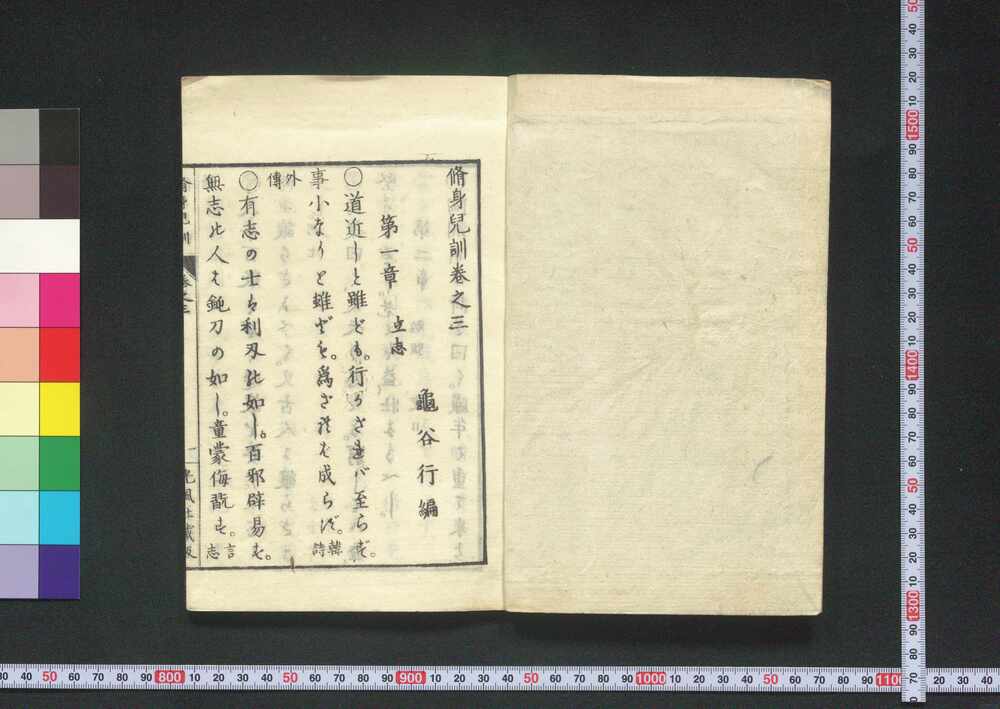 脩身兒訓卷之三
龜谷行編
第一章 立志
○道近しと雖ども。行かざれバ至らず。
事小なりと雖ども。爲ざれば成らず。韓詩
外傳
○有志の士は利刃の如し。百邪辟易す。
無志の人は鈍刀の如し。童蒙侮翫す。言志
脩身兒訓 卷之三 一 光風社藏版